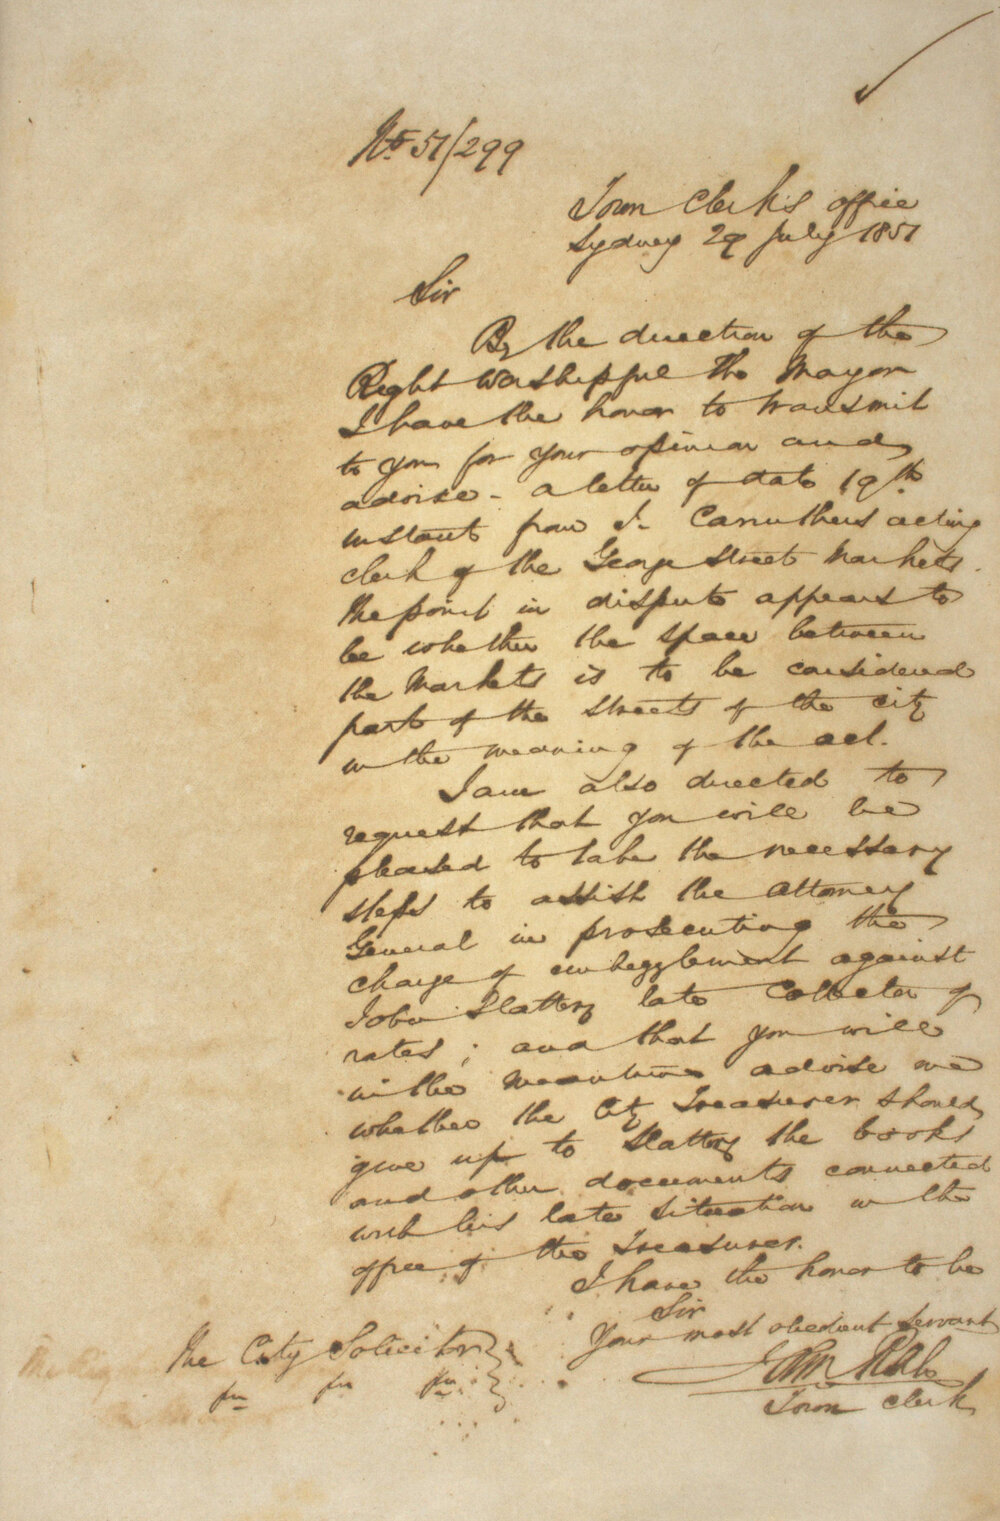 No 51/299
Town Clerk's office
Sydney 29 July 1851
Sir
By the direction of the
Right Worshipful the Mayor
I have the honor to transmit
to you for your opinion and
advise - a letter of date 19th
instant from J. Carruthers acting
clerk of the George Street Markets.
The point in dispute appears to
be whether the space between
the Markets is to be considered
part of the streets of the city
in the meaning of the act.
I am also directed to
request that you will be
pleased to take the necessary
steps to assist the Attorney
General in prosecuting the
charge of embezzlement against
John Slattery late Collector of
rates; and that you will
in the meantime advise me
whether the City Treasurer should
give up to Slattery the books
and other documents connected
with his late situation in the
office of the Treasurer.
I have the honor to be
Sir
Your most obedient servant
John
Town Clerk
The City Solicitor